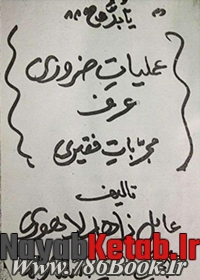 یا بدوح ۸۸
عملیات ضروری
عرف
مجربات فقیری
تالیف
عامل زاهد لاهوری
NayabKetab.Ir
www.786Book.Ir